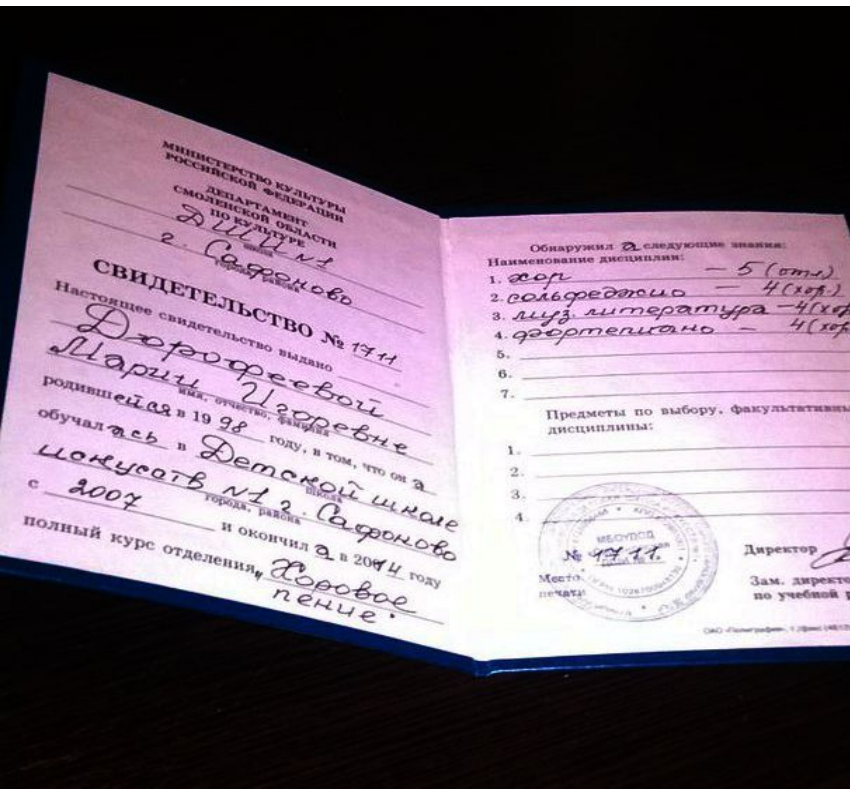 МИНИСТЕРСТВО КУЛЬТУРЫ
РОССИЙСКОЙ ФЕДЕРАЦИИ
ДЕПАРТАМЕНТ
СМОЛЕНСКОЙ ОБЛАСТИ
ПО КУЛЬТУРЕ
ДШИ №1
школа
г. Сафоново
города, района
СВИДЕТЕЛЬСТВО № 1711
Настоящее свидетельство выдано
Дорофеевой
Марии Игоревне
имя, отчество, фамилия
родившейся в 1998 году, в том, что он а
обучалась в Детской школе
школа
искусств №1 г. Сафоново
города, района
с 2007 и окончил а в 2014 году
полный курс отделения „Хоровое
пение".
Обнаружил а следующие знания:
Наименование дисциплин:
1. хор — 5 (отл)
2. сольфеджио — 4 (хор.)
3. муз. литература — 4 (хор
4. фортепиано — 4 (хор
5.
6.
7.
Предметы по выбору, факультативны
дисциплины:
1.
2.
3.
4.
МБОУДОД
№ 1711.
Место
печати
Директор
Зам. директо
по учебной р